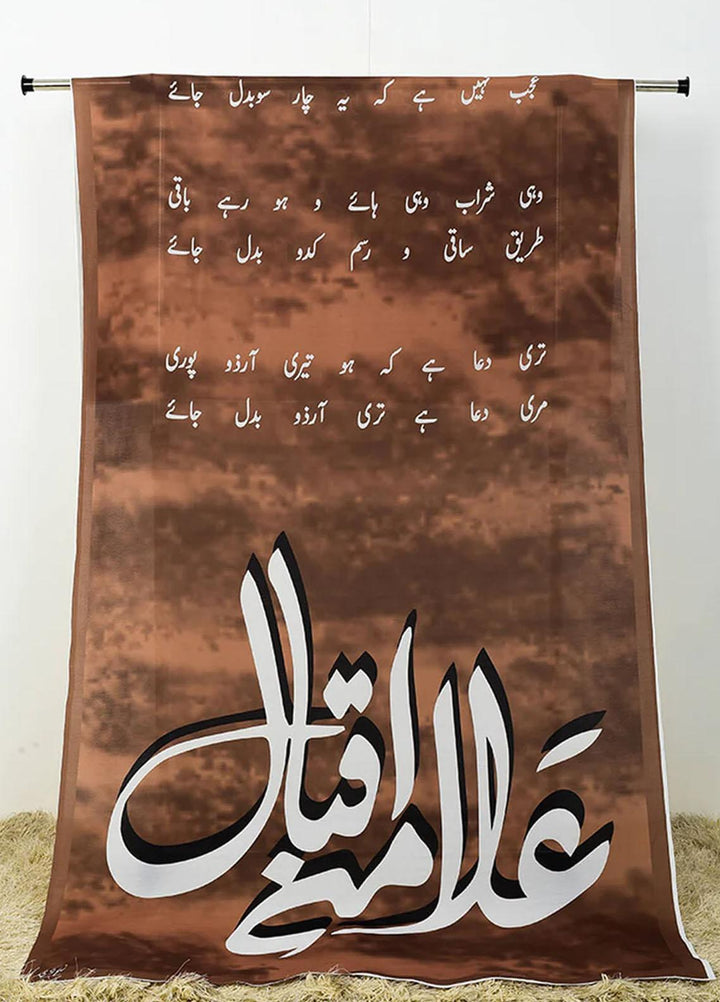 عجب نہیں ہے کہ یہ چار سو بدل جائے
وہی شراب وہی ہائے و ہو رہے باقی
طریق ساقی و رسم کدو بدل جائے
تری دعا ہے کہ ہو تیری آرزو پوری
مری دعا ہے تری آرزو بدل جائے
علامہ اقبال